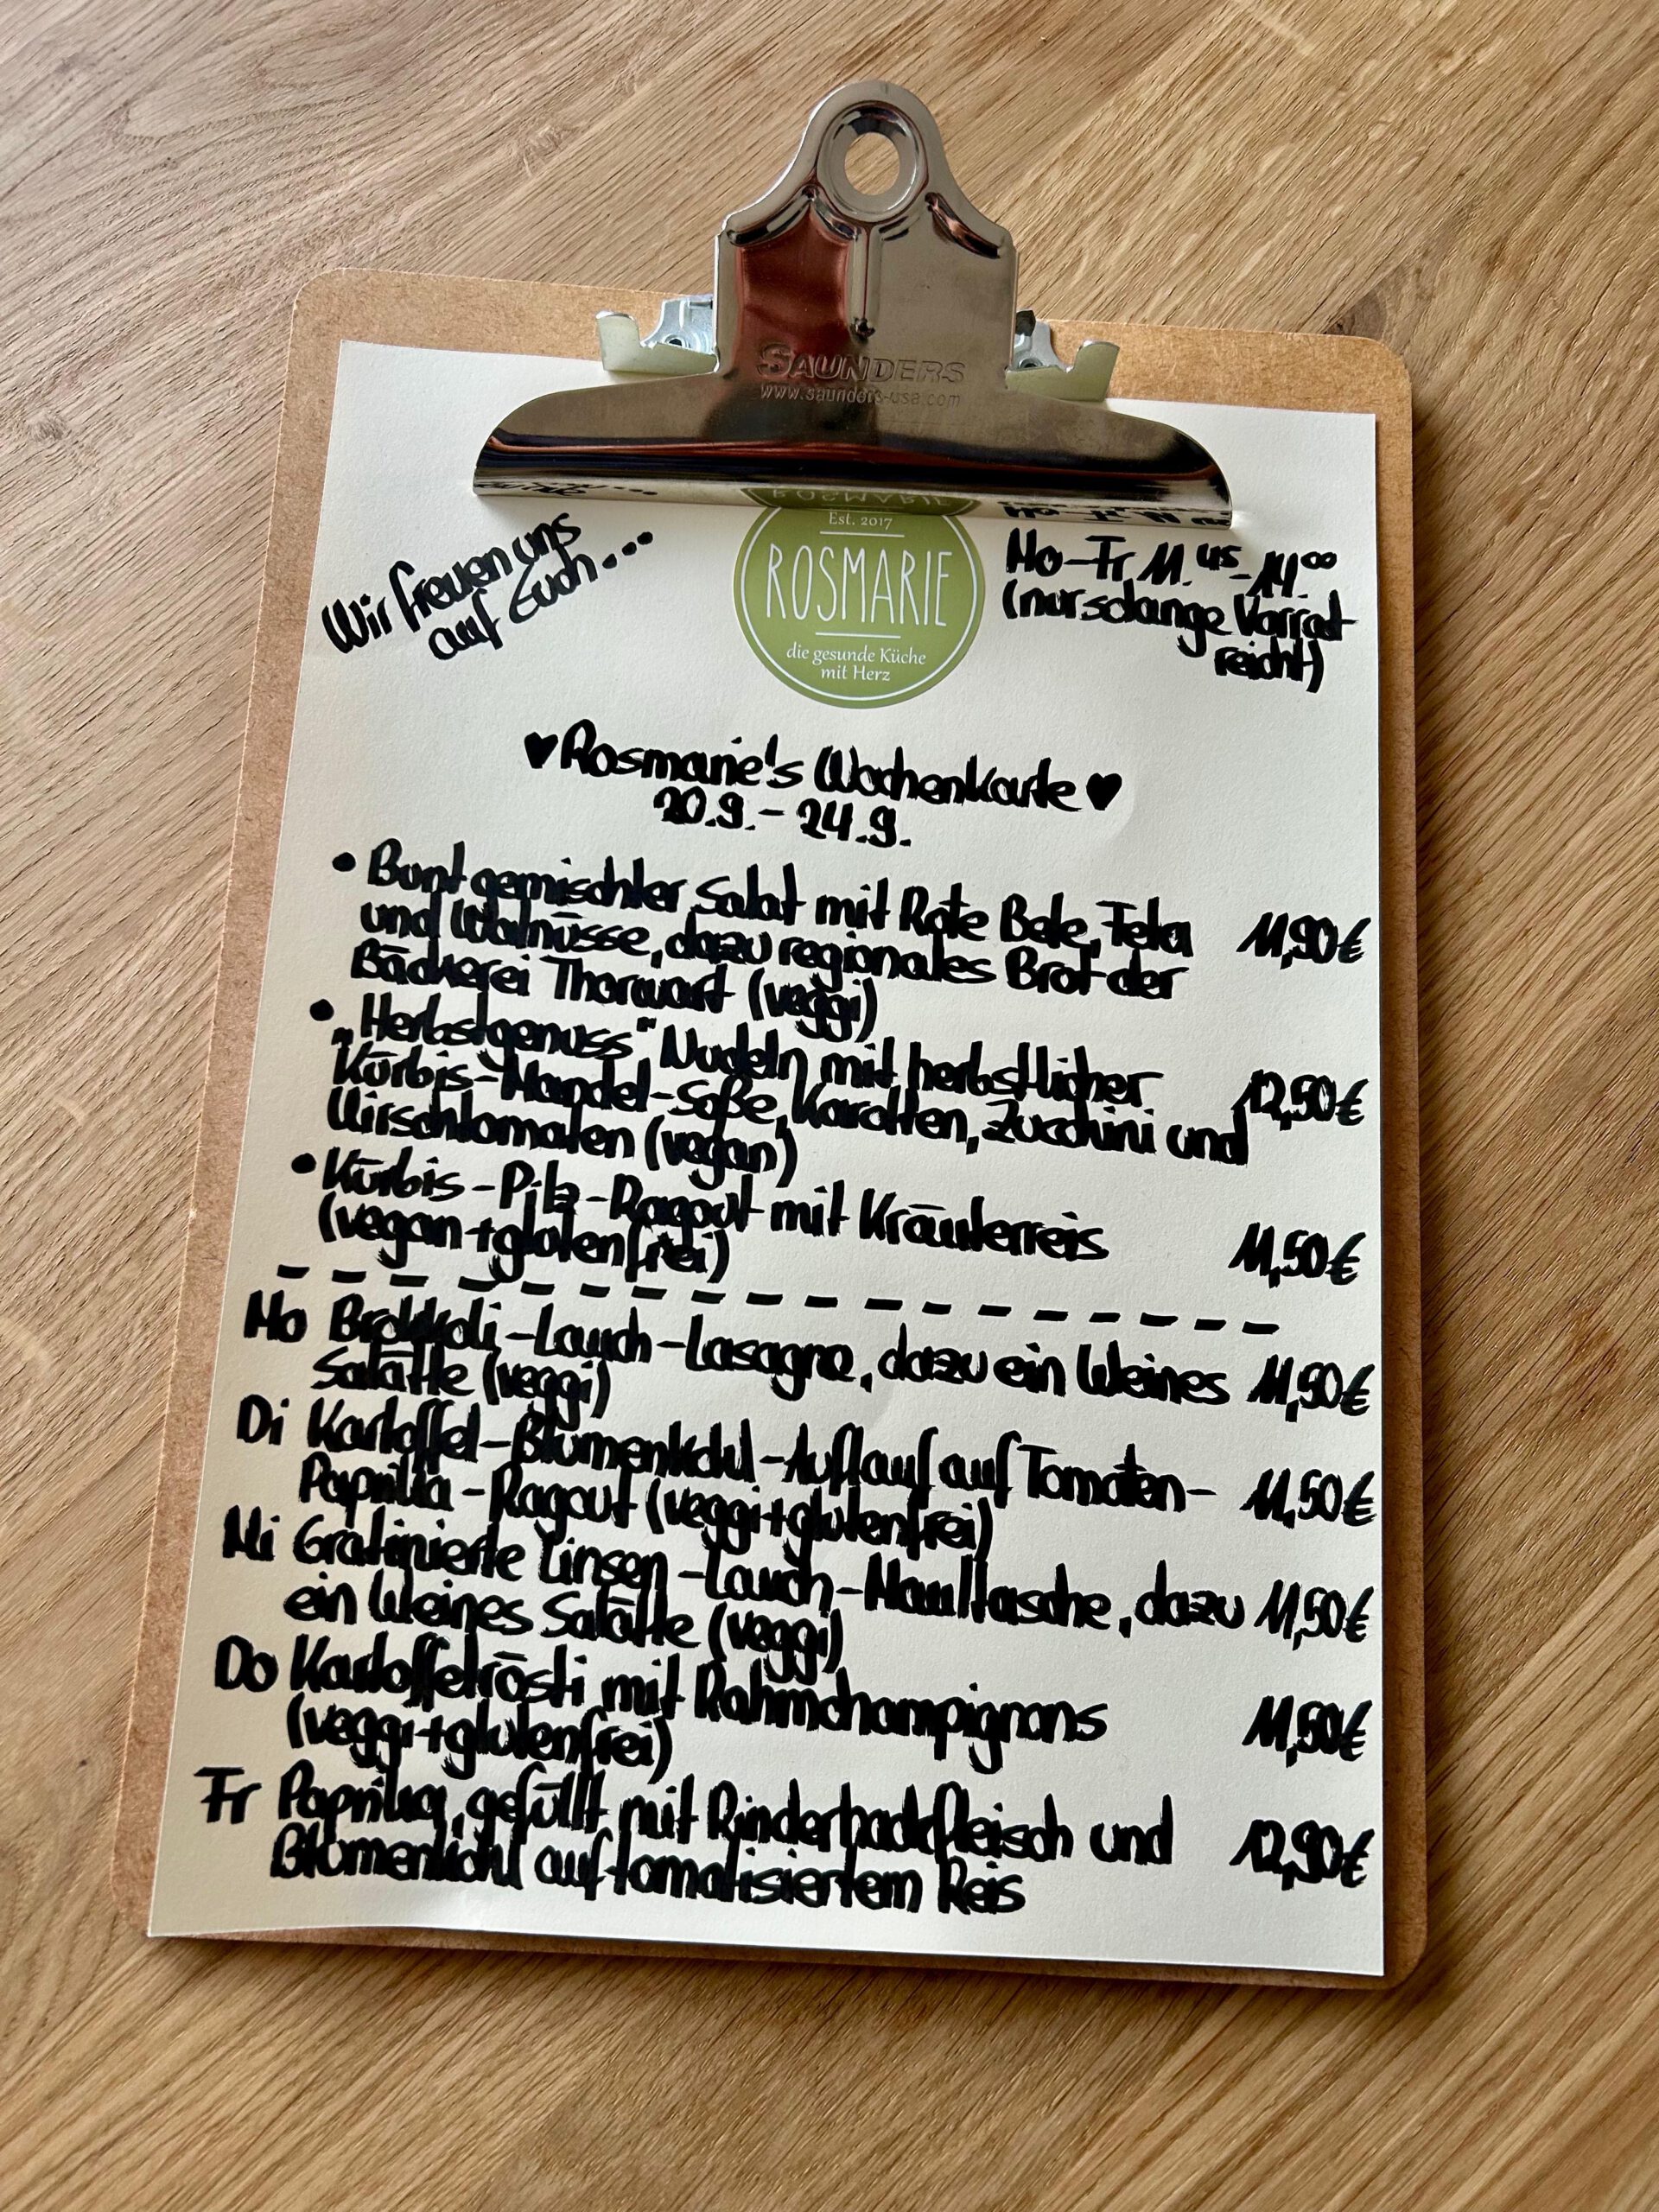 SAUNDERS
www.saunders-usa.com
Wir freuen uns
auf Euch...
Est. 2017
ROSMARIE
die gesunde Küche
mit Herz
Mo-Fr 11.45-14.00
(nur solange Vorrat
reicht)
♥ Rosmarie's Wochenkarte ♥
20.9. - 24.9.
• Bunt gemischter Salat mit Rote Bete, Feta
und Walnüsse, dazu regionales Brot der 11,90€
Bäckerei Thorwart (veggi)
• „Herbstgenuss" Nudeln mit herbstlicher
Kürbis-Mandel-Soße, Karotten, Zucchini und 12,50€
Kirschtomaten (vegan)
• Kürbis-Pilz-Ragout mit Kräuterreis
(vegan + glutenfrei) 11,50€
Mo Brokkoli-Lauch-Lasagne, dazu ein kleines 11,50€
Salätle (veggi)
Di Kartoffel-Blumenkohl-Auflauf auf Tomaten- 11,50€
Paprika-Ragout (veggi+glutenfrei)
Mi Gratinierte Linsen-Lauch-Maultasche, dazu 11,50€
ein kleines Salätle (veggi)
Do Kartoffelrösti mit Rahmchampignons 11,50€
(veggi+glutenfrei)
Fr Paprika, gefüllt mit Rinderhackfleisch und 12,90€
Blumenkohl auf tomatisiertem Reis